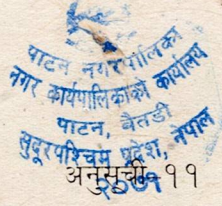 पाटन नगरपालिका
नगर कार्यपालिकाको कार्यालय
पाटन, बैतडी
सुदूरपश्चिम प्रदेश, नेपाल
अनुसूची-११
२०७१